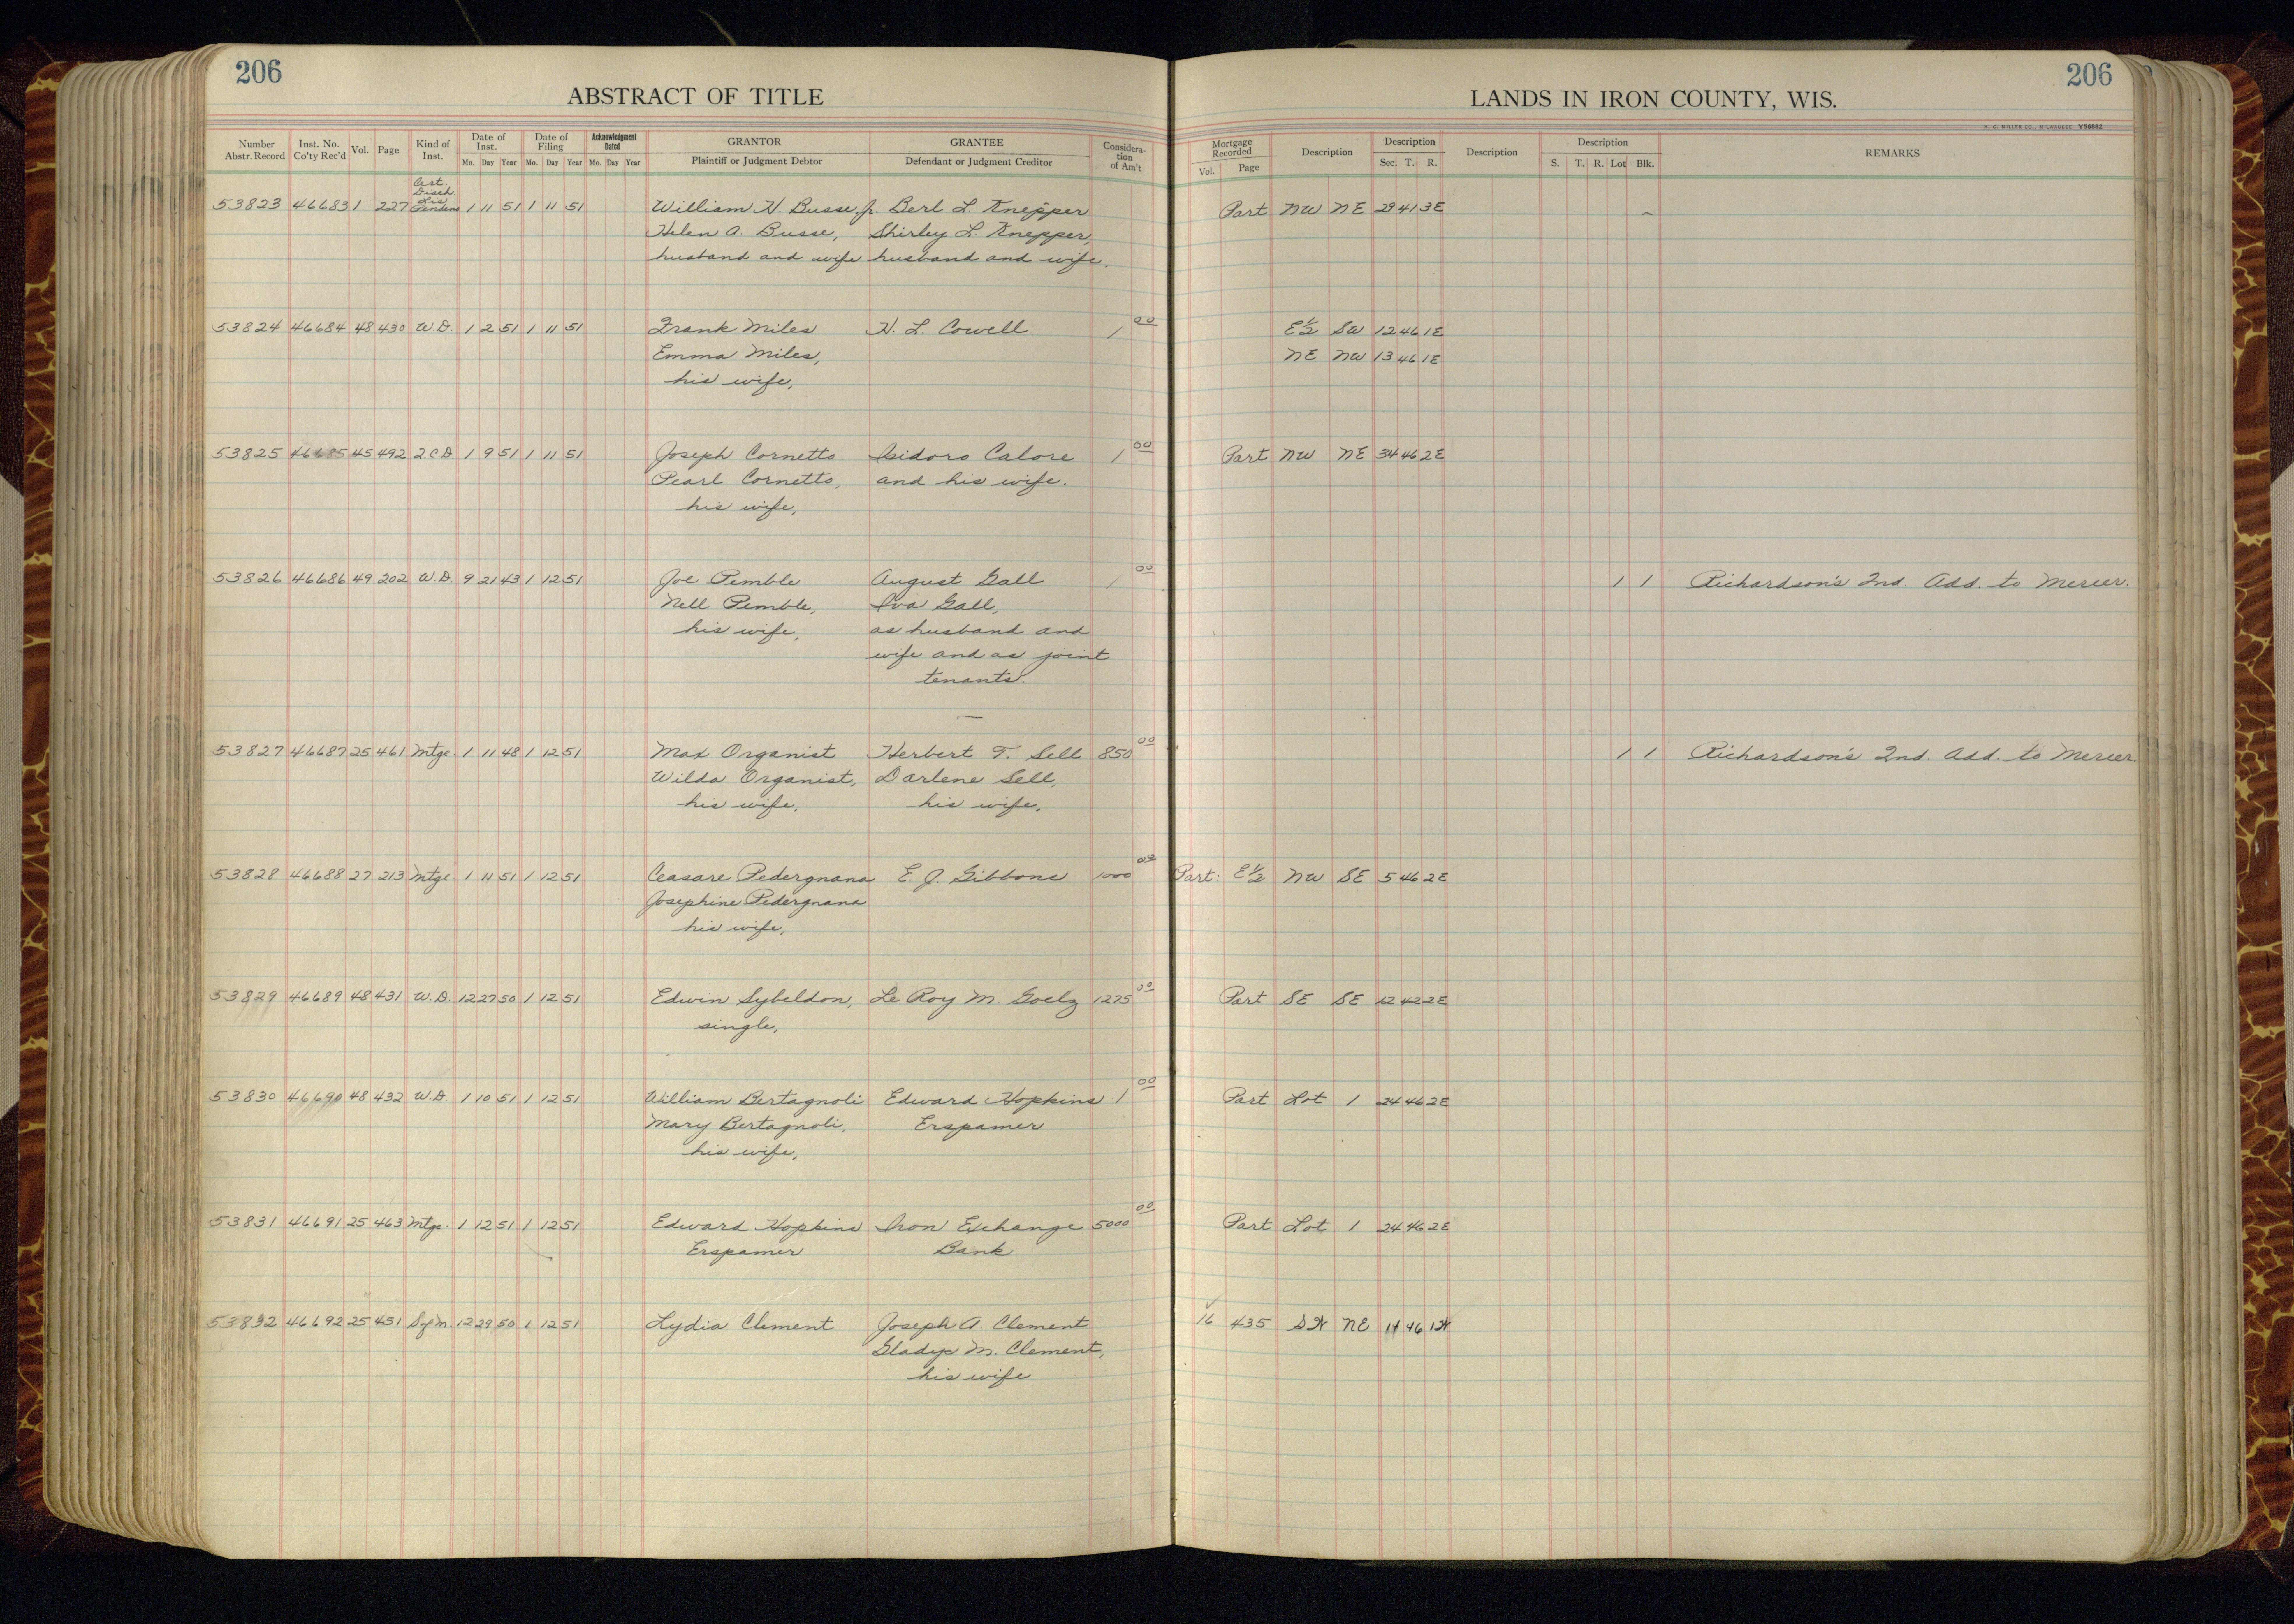 206
ABSTRACT OF TITLE
LANDS IN IRON COUNTY, WIS.
206
H. C. MILLER CO., MILWAUKEE Y56662
Number Abstr. Record Inst. No. Co'ty Rec'd Vol. Page Kind of Inst. Date of Inst. Mo. Day Year Date of Filing Mo. Day Year Acknowledgment Dated Mo. Day Year GRANTOR Plaintiff or Judgment Debtor GRANTEE Defendant or Judgment Creditor Consideration of Am't Mortgage Recorded Vol. Page Description Description Sec. T. R. Description Description S. T. R. Lot Blk. REMARKS
Cert.
Disch.
Lis
53823 46683 1 227 Pendens 1 11 51 1 11 51 William H. Busse, Jr. Berl L. Knepper Part NW NE 29 41 3E
Helen A. Busse, Shirley L. Knepper,
husband and wife husband and wife.
53824 46684 48 430 W.D. 1 2 51 1 11 51 Frank Miles H. L. Cowell 1 00 E½ SW 12 46 1E
Emma Miles, NE NW 13 46 1E
his wife,
53825 46685 45 492 2.C.D. 1 9 51 1 11 51 Joseph Cornetto Isidoro Calore 1 00 Part NW NE 34 46 2E
Pearl Cornetto, and his wife.
his wife,
53826 46686 49 202 W.D. 9 21 43 1 12 51 Joe Pemble August Gall 1 00 1 1 Richardson's 2nd. Add. to Mercer.
Nell Pemble, Iva Gall,
his wife, as husband and
wife and as joint
tenants.
53827 46687 25 461 Mtge 1 11 48 1 12 51 Max Organist Herbert T. Sell 850 00 1 1 Richardson's 2nd. Add. to Mercer.
Wilda Organist, Darlene Sell,
his wife, his wife,
53828 46688 27 213 Mtge 1 11 51 1 12 51 Ceasare Pedergnana E. J. Gibbons 1000 00 Part: E½ NW SE 5 46 2E
Josephine Pedergnana
his wife,
53829 46689 48 431 W.D. 12 27 50 1 12 51 Edwin Sybeldon, Le Roy M. Goelz 1275 00 Part SE SE 12 42 2E
single,
53830 46690 48 432 W.D. 1 10 51 1 12 51 William Bertagnoli Edward Hopkins 1 00 Part Lot 1 24 46 2E
Mary Bertagnoli, Erspamer
his wife,
53831 46691 25 463 Mtge. 1 12 51 1 12 51 Edward Hopkins Iron Exchange 5000 00 Part Lot 1 24 46 2E
Erspamer Bank
53832 46692 25 451 S of M. 12 29 50 1 12 51 Lydia Clement Joseph A. Clement 16 435 SW NE 14 46 1W
Gladys M. Clement,
his wife